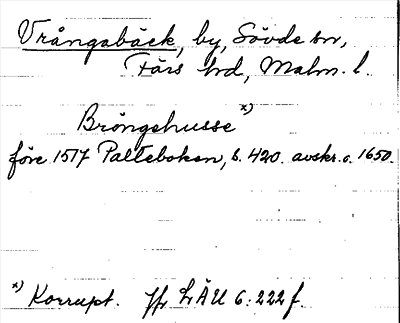 Vrångabäck, by, Sövde sn,
Färs hd, Malm. l.
Bröngehusse *)
före 1517 Palteboken, s. 420. avskr. o. 1650.
*) Korrupt. Jfr LÄU 6:222 f.